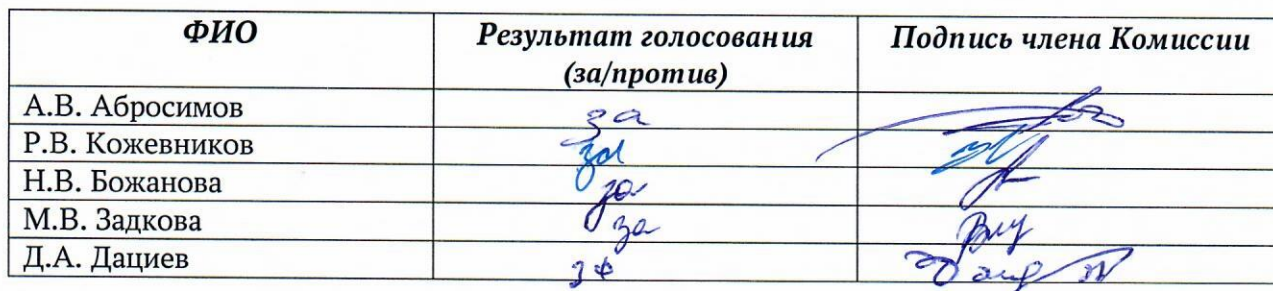 ФИО Результат голосования (за/против) Подпись члена Комиссии
А.В. Абросимов за
Р.В. Кожевников за
Н.В. Божанова за
М.В. Задкова за
Д.А. Дациев за